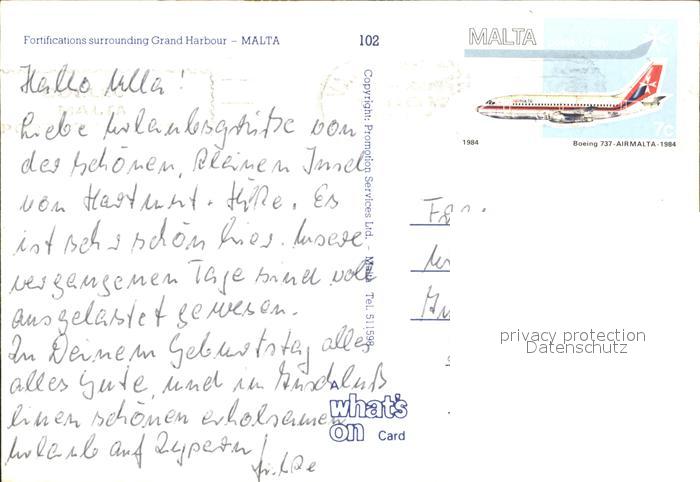 Fortifications surrounding Grand Harbour – MALTA
102
MALTA
7c
1984
Boeing 737-AIRMALTA-1984
Hallo Ulla!
Liebe Urlaubsgrüße von
der schönen, kleinen Insel
von Hartmut + Hilke. Es
ist sehr schön hier. Unsere
vergangenen Tage sind voll
ausgelastet gewesen.
Zu Deinem Geburtstag alles
alles Gute, und im Anschluß
einen schönen erholsamen
Urlaub auf Zypern!
Hilke
Copyright: Promotion Services Ltd. – Malta Tel. 511598
A
what's
on Card
privacy protection
Datenschutz